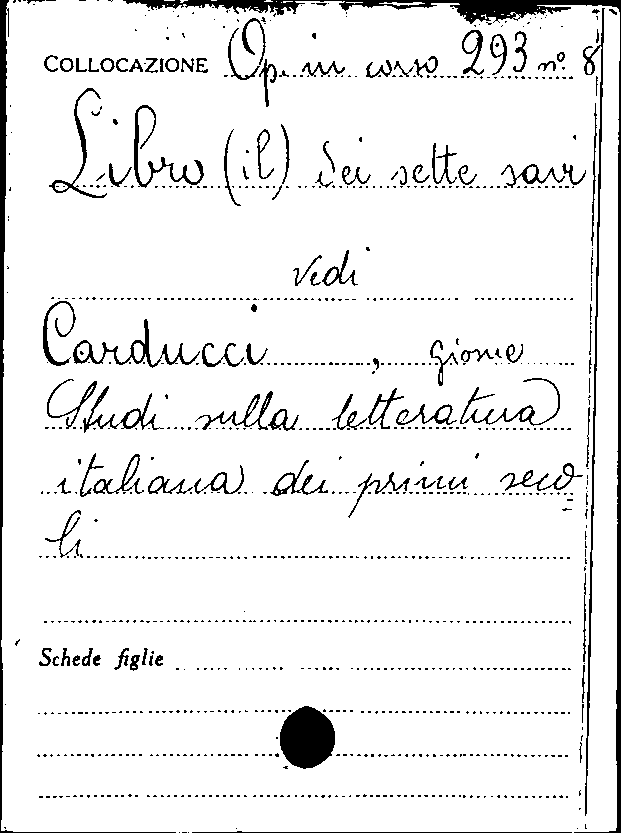 COLLOCAZIONE Op. in corso 293 n.º 8
Libro (il) dei sette savi
vedi
Carducci, giosue
Studi sulla letteratura
italiana dei primi seco=
li
Schede figlie